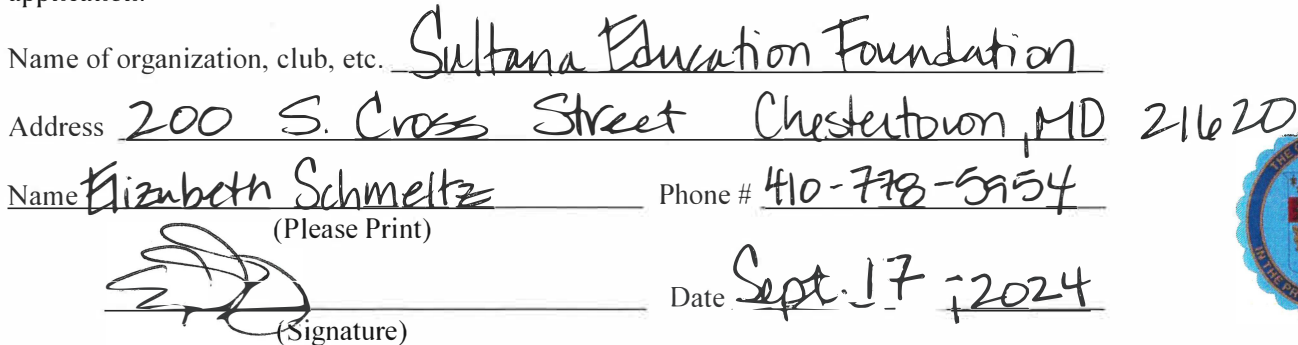 application.
Name of organization, club, etc. Sultana Education Foundation
Address 200 S. Cross Street Chestertown, MD 21620
Name Elizabeth Schmeltz Phone # 410-778-5954
(Please Print)
Date Sept. 17, 2024
(Signature)
THE
IN THE PR